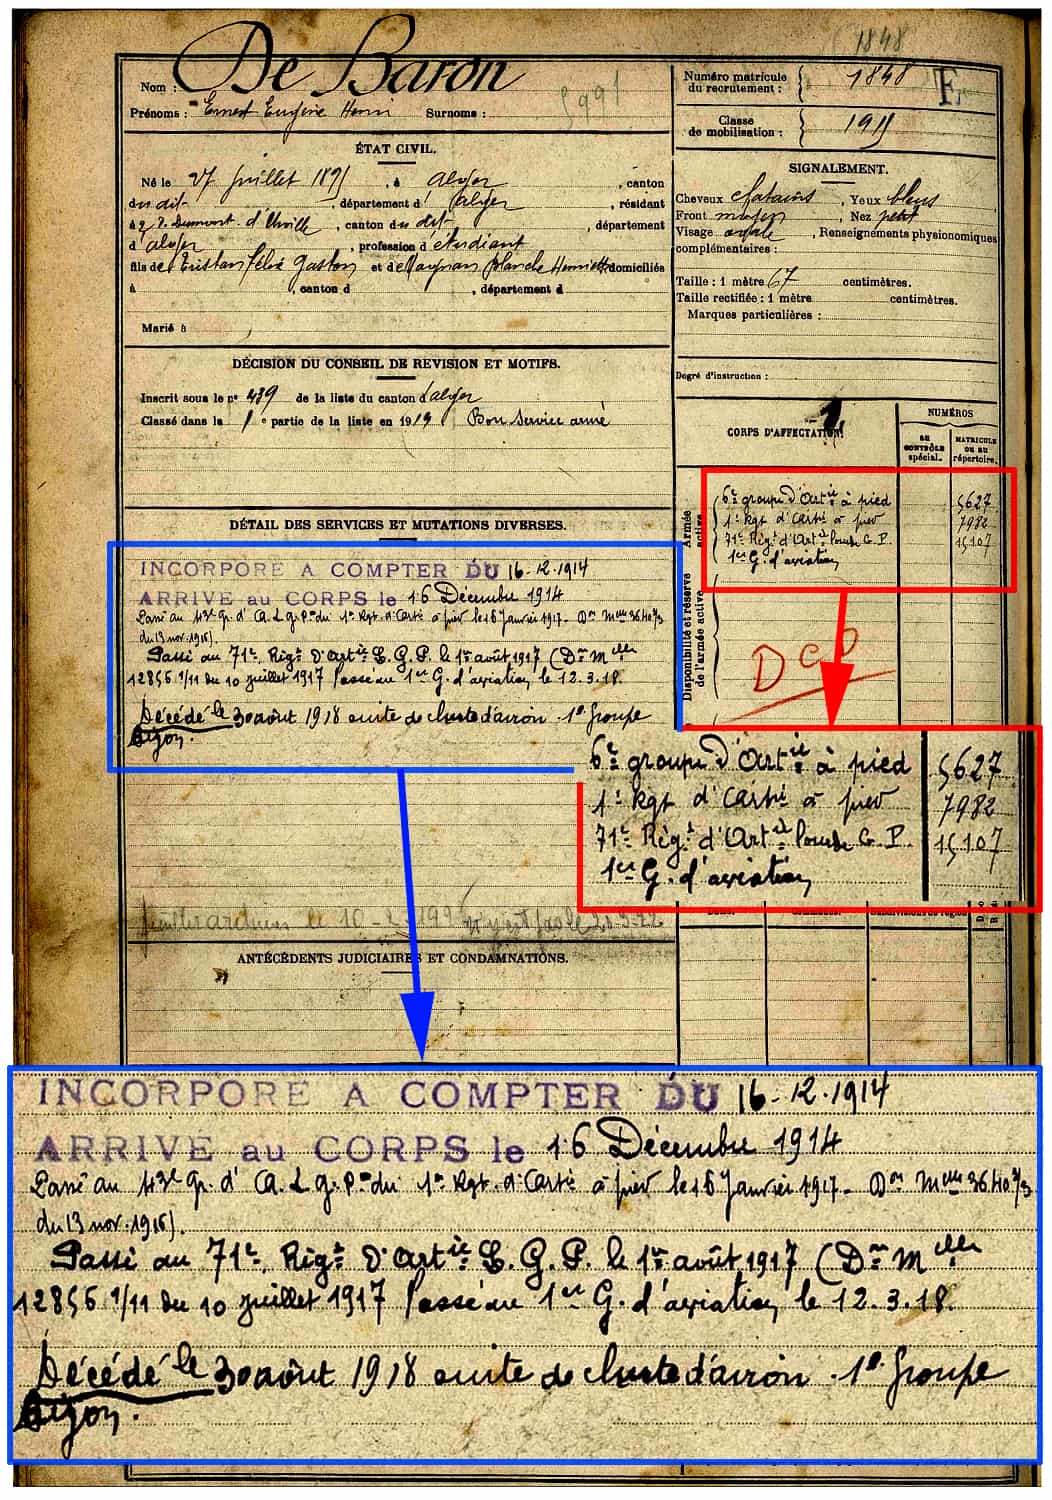 1848
Nom : De Baron
Prénoms : Ernest Eugène Henri Surnoms :
5991
Numéro matricule du recrutement : 1848
E
Classe de mobilisation : 1915
ÉTAT CIVIL.
Né le 27 juillet 1895, à Alger, canton
du dit, département d'Alger, résidant
à 2 r. Dumont d'Urville, canton du dit, département
d'Alger, profession d'étudiant
fils de Tristan Félix Gaston et de Blanche Henriette domiciliés
à , canton d , département d
Marié à
SIGNALEMENT.
Cheveux chatains, Yeux bleus
Front moyen, Nez petit
Visage ovale, Renseignements physionomiques
complémentaires :
Taille : 1 mètre 67 centimètres.
Taille rectifiée : 1 mètre centimètres.
Marques particulières :
Degré d'instruction :
DÉCISION DU CONSEIL DE REVISION ET MOTIFS.
Inscrit sous le nº 439 de la liste du canton d'Alger
Classé dans la 1e partie de la liste en 1914 Bon Service armé
CORPS D'AFFECTATION.
1
NUMÉROS
AU CONTRÔLE spécial.
MATRICULE OU AU répertoire.
Armée active
6e groupe d'Artie à pied 5627
1er Rgt d'Artie à pied 7982
71e Régt d'Artie lourde G. P. 15107
1er G. d'aviation
Disponibilité et réserve de l'armée active
DCD
DÉTAIL DES SERVICES ET MUTATIONS DIVERSES.
INCORPORE A COMPTER DU 16-12.1914
ARRIVE au CORPS le 16 Décembre 1914
Passé au 43e Gr. d' A. L. g. P. du 1er Rgt. d'Artie à pied le 16 Janvier 1917 - Don Mlle 36403/3
du 13 nov. 1916).
Passé au 71e Régt d'Artie L. G. P. le 1er août 1917 (Don Mlle
12856 1/11 du 10 juillet 1917 Passé au 1er G. d'aviation le 12.3.18.
Décédé le 30 août 1918 suite de chute d'avion. 1er Groupe
Dijon.
6e groupe d'Artie à pied 5627
1er Rgt d'Artie à pied 7982
71e Régt d'Artie lourde G. P. 15107
1er G. d'aviation
le 10-2-1996
ANTÉCÉDENTS JUDICIAIRES ET CONDAMNATIONS.
INCORPORE A COMPTER DU 16-12.1914
ARRIVE au CORPS le 16 Décembre 1914
Passé au 43e Gr. d' A. L. g. P. du 1er Rgt. d'Artie à pied le 16 Janvier 1917 - Don Mlle 36403/3
du 13 nov. 1916).
Passé au 71e Régt d'Artie L. G. P. le 1er août 1917 (Don Mlle
12856 1/11 du 10 juillet 1917 Passé au 1er G. d'aviation le 12.3.18.
Décédé le 30 août 1918 suite de chute d'avion. 1er Groupe
Dijon.